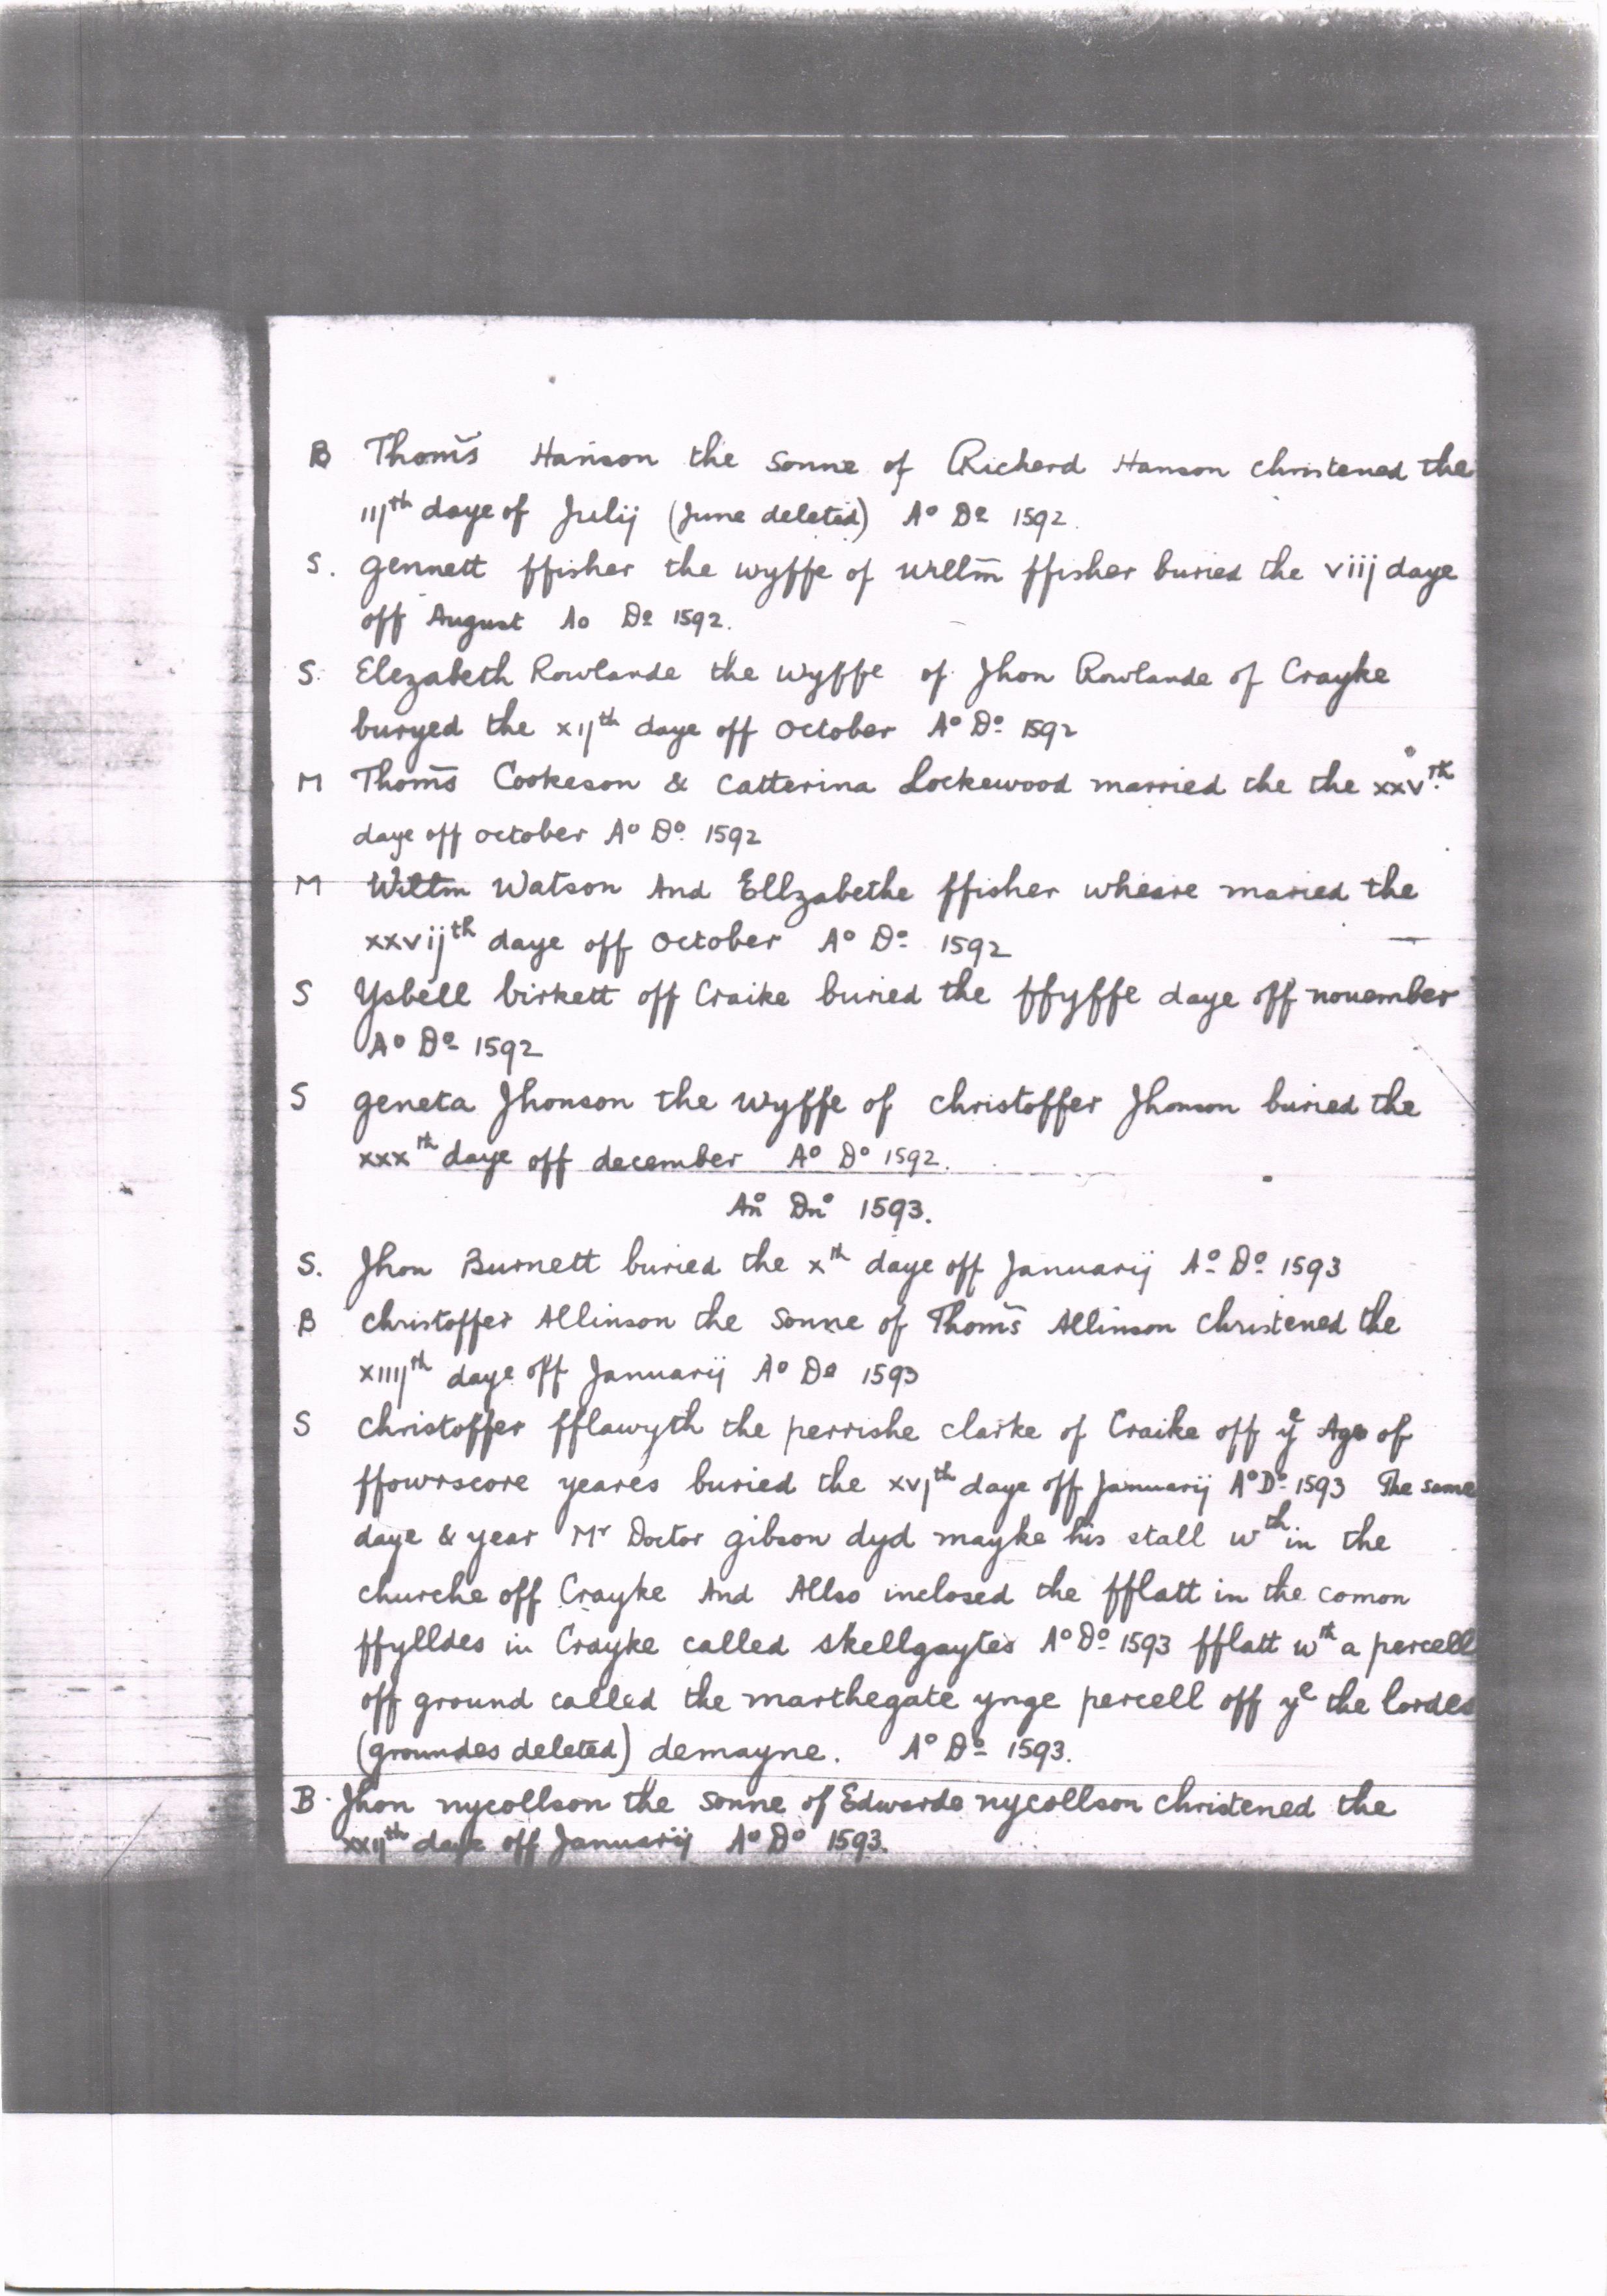 B Thom̃s Hanson the sonne of Richerd Hanson christened the
iijth daye of Julij (June deleted) Ao Do 1592.
S. gennett ffisher the wyffe of Willm̄ ffisher buried the viij daye
off August Ao Do 1592.
S. Elezabeth Rowlande the wyffe of Jhon Rowlande of Crayke
buryed the xijth daye off october Ao Do 1592
M Thom̄s Cookeson & Catterina Lockewood married the the xxvth
daye off october Ao Do 1592
M Willm Watson And Ellzabethe ffisher wheare maried the
xxvijth daye off october Ao Do 1592
S Ysbell birkett off Craike buried the ffyffe daye off nouember
Ao Do 1592
S geneta Jhonson the wyffe of christoffer Jhonson buried the
xxxth daye off december Ao Do 1592.
Ano Dno 1593.
S. Jhon Burnett buried the xth daye off Januarij Ao Do 1593
B christoffer Allinson the sonne of Thom̃s Allinson christened the
xiiijth daye off Januarij Ao Do 1593
S christoffer fflawyth the perrishe clarke of Craike off ye Age of
ffowrscore yeares buried the xvjth daye off Januarij Ao Do 1593 The same
daye & year Mr Doctor gibson dyd mayke his stall wth in the
churche off Crayke And Allso inclosed the fflatt in the comon
ffylldes in Crayke called skellgaytes Ao Do 1593 fflatt wth a percell
off ground called the marthegate ynge percell off ye the lordes
(groundes deleted) demayne. Ao Do 1593.
B. Jhon nycollson the sonne of Edwarde nycollson christened the
xxijth daye off Januarij Ao Do 1593.